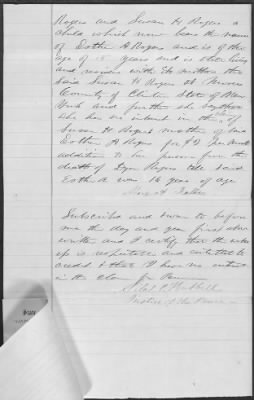 Rogers and Susan H Rogers a
child which now bears the name
of Esther A Rogers and is of the
age of 15 years and is still living
and resides with the mother the
said Susan H Rogers at
County of Clinton State of New
York and further she says that
she has no interest in the
Susan H Rogers mother of said
Esther A Rogers for $2 per month
addition to her pension from the
death of Rogers till said
Esther A was 16 years of age
Subscribed and sworn to before
me the day and year first above
written and I certify that the
is respectable and entitled to
credit & that I have no interest
in the claim for Pension
Justice of the Peace